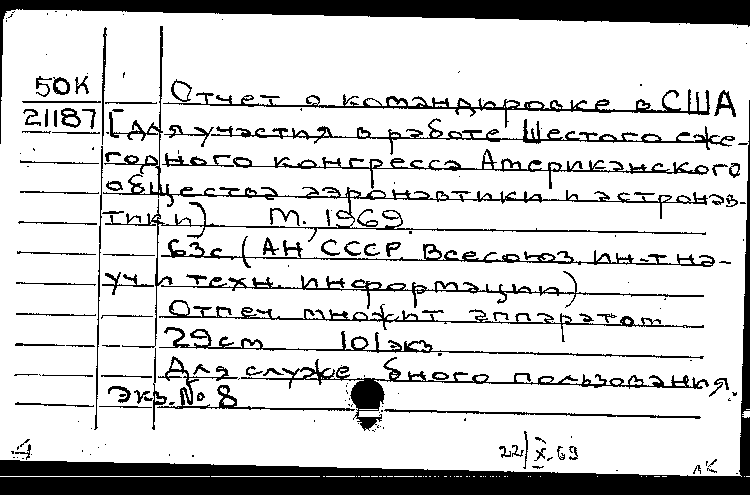 50К
21187
Отчет о командировке в США
[для участия в работе Шестого еже-
годного конгресса Американского
общества аэронавтики и астронав-
тики). М., 1969.
63с. (АН СССР. Всесоюз. ин-т на-
уч. и техн. информации)
Отпеч. множит. аппаратом
29см 101экз.
Для служе бного пользования.
Экз. № 8
22/X-69